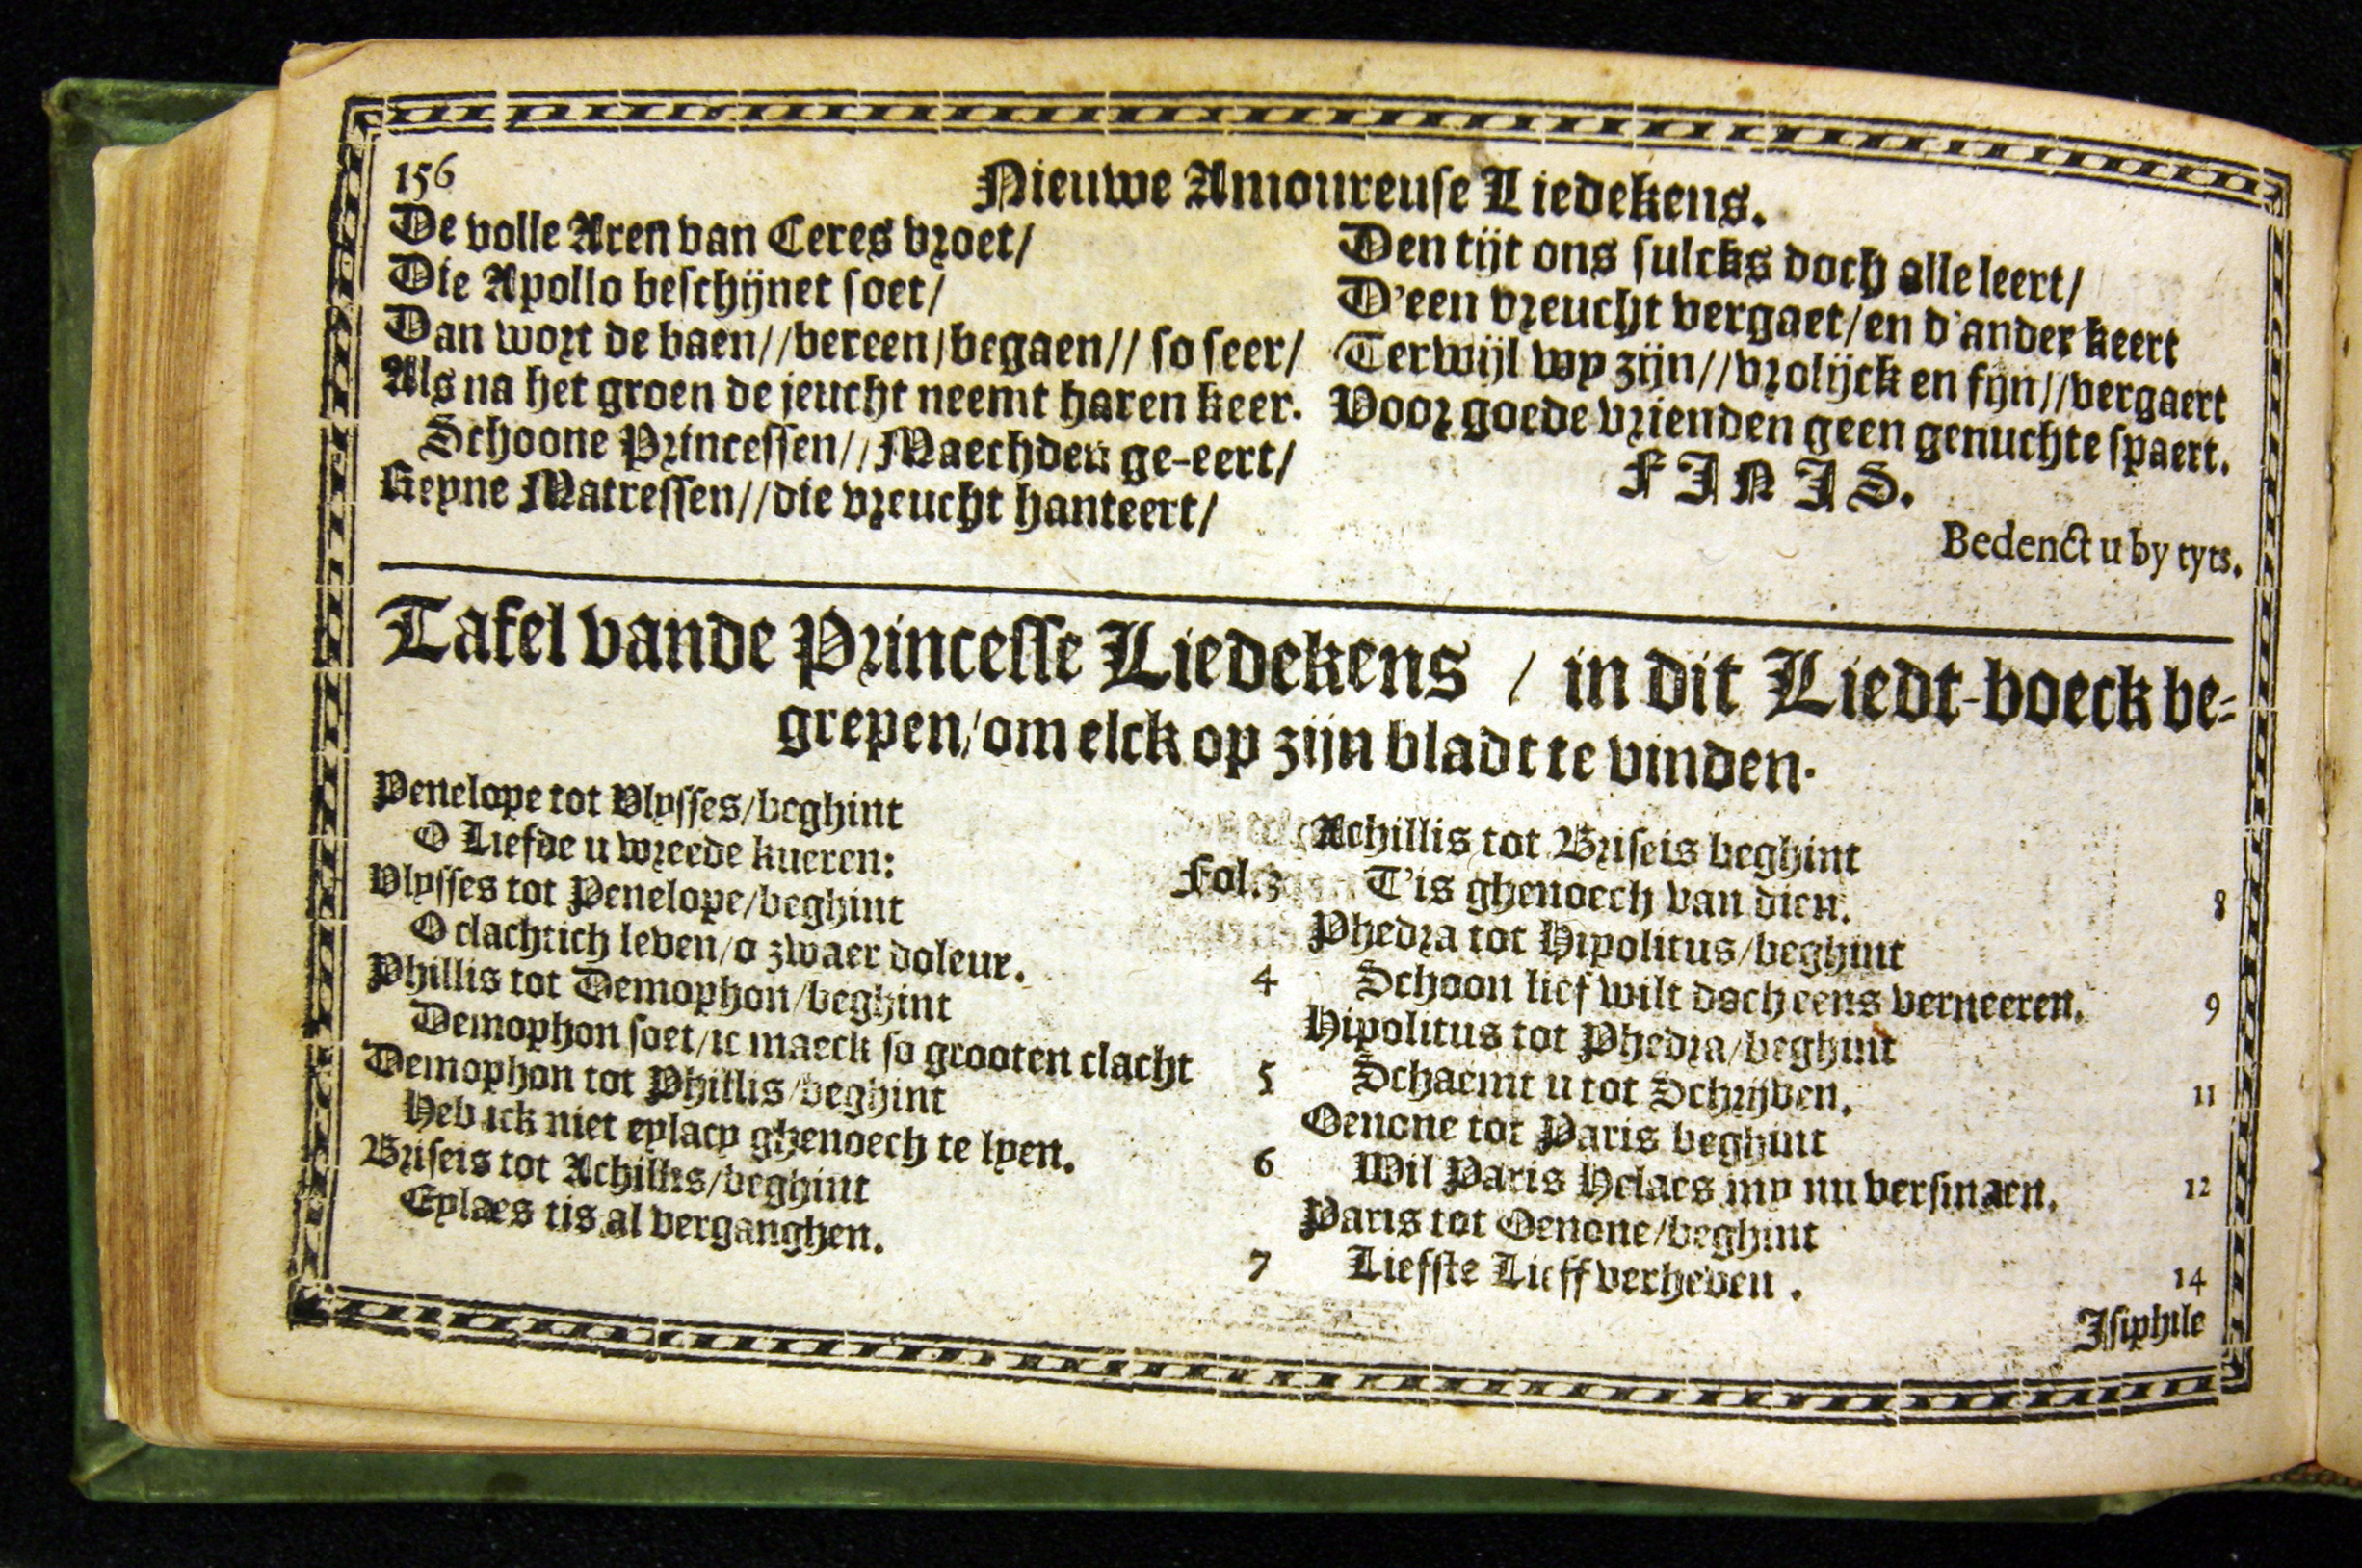 156
Nieuwe Amoureuse Liedekens.
De volle Aren van Ceres vroet/
Die Apollo beschijnet soet/
Dan wort de baen//bereen/begaen// so seer/
Als na het groen de jeucht neemt haren keer.
Schoone Princessen//Maechden ge-eert/
Reyne Matressen//die vreucht hanteert/
Den tijt ons sulcks doch alle leert/
D'een vreucht vergaet/en d'ander keert
Terwijl wy zijn//vrolijck en fijn//vergaert
Voor goede vrienden geen genuchte spaert.
FINIS.
Bedenct u by tyts.
Tafel vande Princesse Liedekens / in dit Liedt-boeck be-
grepen/om elck op zijn bladt te vinden.
Penelope tot Vlysses/beghint
O Liefde u wreede kueren: Fol.3
Vlysses tot Penelope/beghint
O clachtich leven/o zwaer doleur. 4
Phillis tot Demophon/beghint
Demophon soet/ic maeck so grooten clacht 5
Demophon tot Phillis/beghint
Heb ick niet eylacy ghenoech te lyen. 6
Briseis tot Achillis/beghint
Eylaes tis al verganghen. 7
Achillis tot Briseis beghint
T'is ghenoech van dien. 8
Phedra tot Hipolitus/beghint
Schoon lief wilt doch eens verneeren. 9
Hipolitus tot Phedra/beghint
Schaemt u tot Schrijven. 11
Oenone tot Paris beghint
Wil Paris Helaes my nu versmaen. 12
Paris tot Oenone/beghint
Liefste Lieff verheven . 14
Isiphile